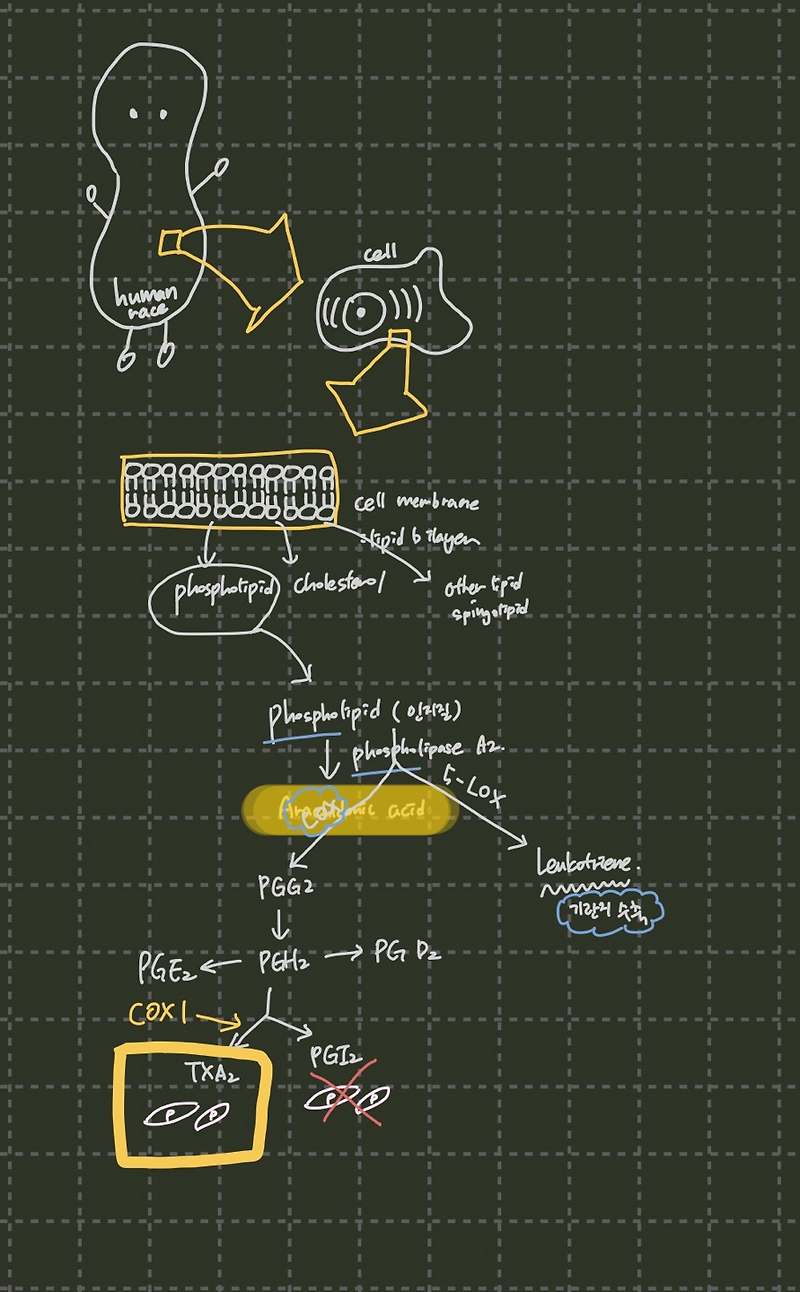 human
race
cell
cell membrane
lipid bilayer
phospholipid
cholesterol
other lipid
spingolipid
phospholipid (인지질)
phospholipase A2.
5-LOX
COX
acid
Leukotriene.
기관지 수축
PGG2
PGE2
PGH2
PG D2
COX1
TXA2
P
P
PGI2
P
P